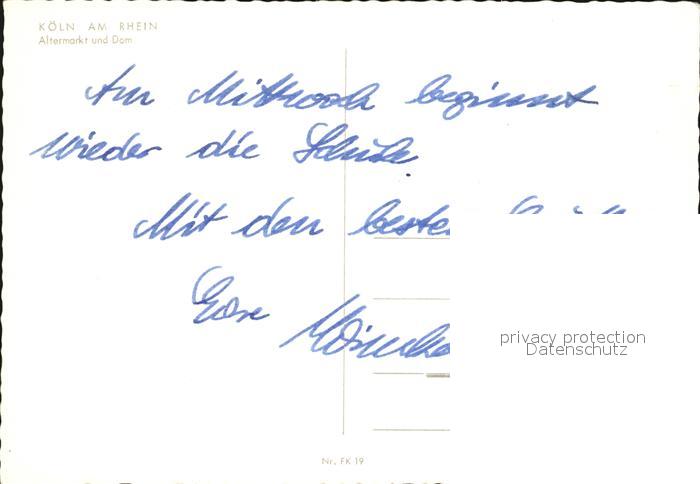 KÖLN AM RHEIN
Altermarkt und Dom
Am Mittwoch beginnt
wieder die Schule.
Mit den besten
Nr. FK 19
privacy protection
Datenschutz